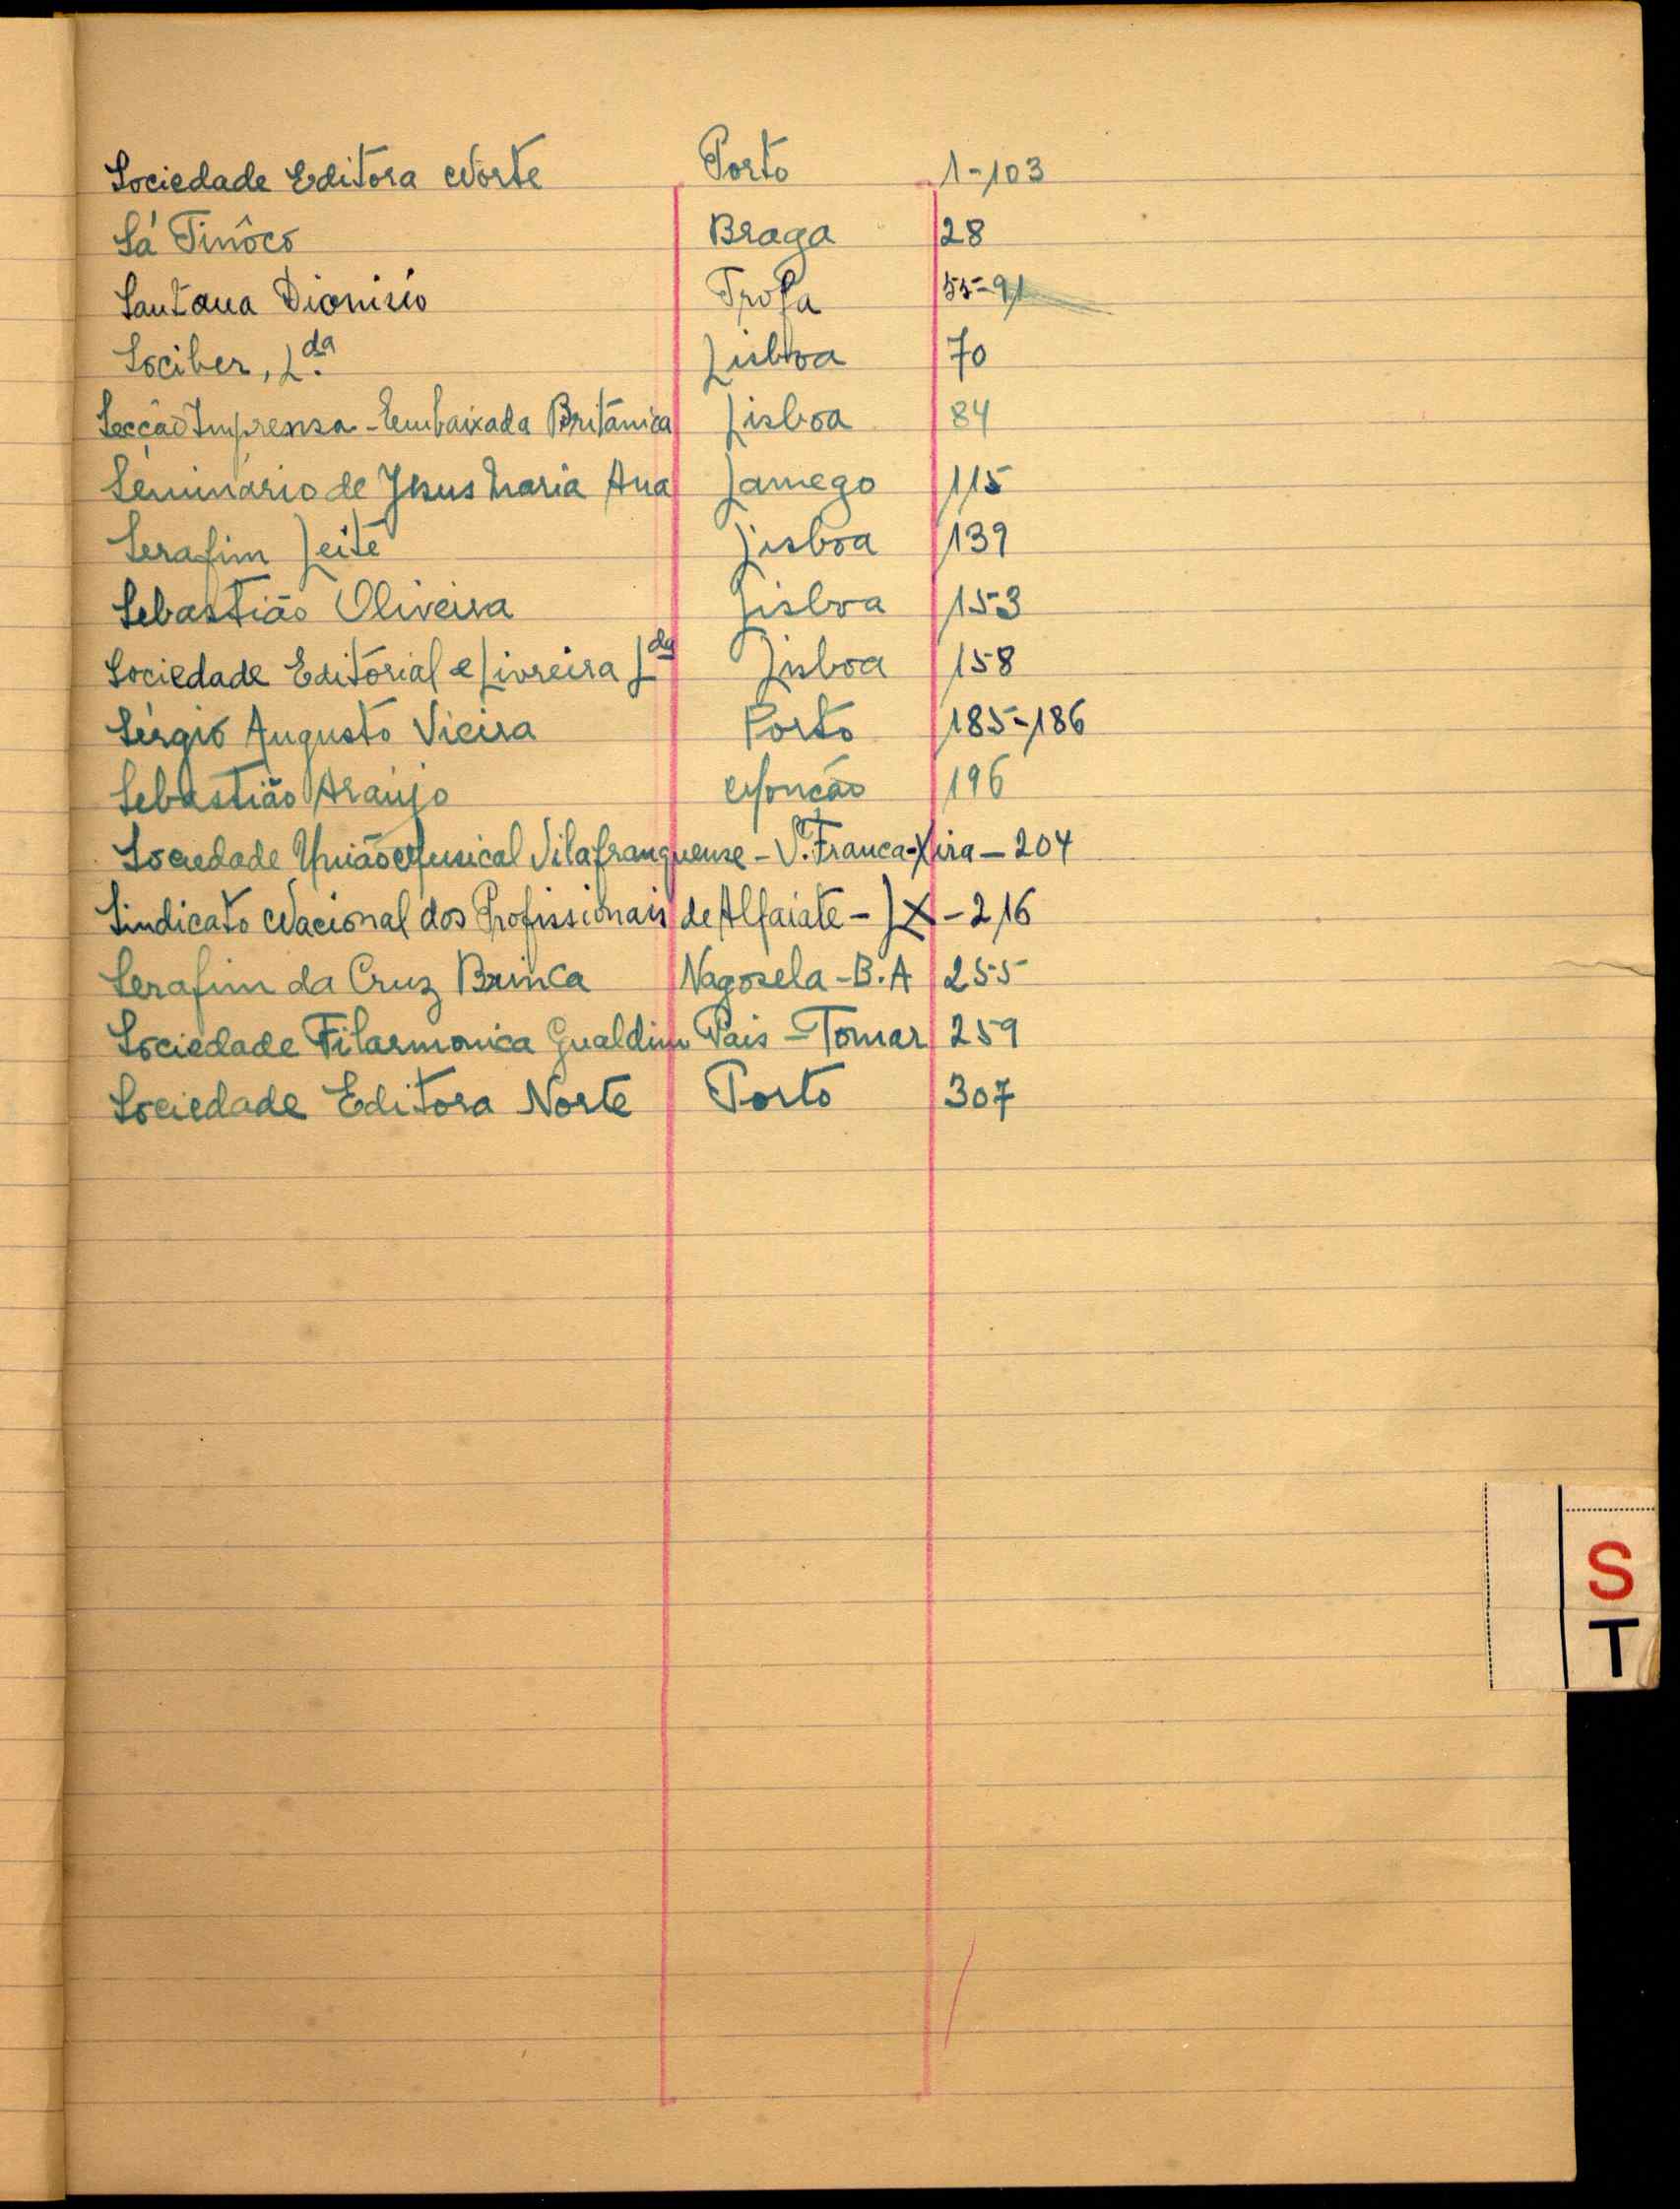 Sociedade Editora Norte Porto 1-103
Sá Tinôco Braga 28
Santana Dionisio Trofa 55-91
Sociber, L.da Lisboa 70
Secção Imprensa - Embaixada Britânica Lisboa 84
Seminário de Jesus Maria Ana Lamego 115
Serafim Leite Lisboa 139
Sebastião Oliveira Lisboa 153
Sociedade Editorial e Livreira Lda Lisboa 158
Sérgio Augusto Vieira Porto 185-186
Sebastião Araújo Monção 196
Sociedade União Musical Vilafranquense - V. Franca-Xira - 204
Sindicato Nacional dos Profissionais de Alfaiate - LX - 216
Serafim da Cruz Brinca Nagosela - B.A 255
Sociedade Filarmonica Gualdim Pais - Tomar 259
Sociedade Editora Norte Porto 307
S
T